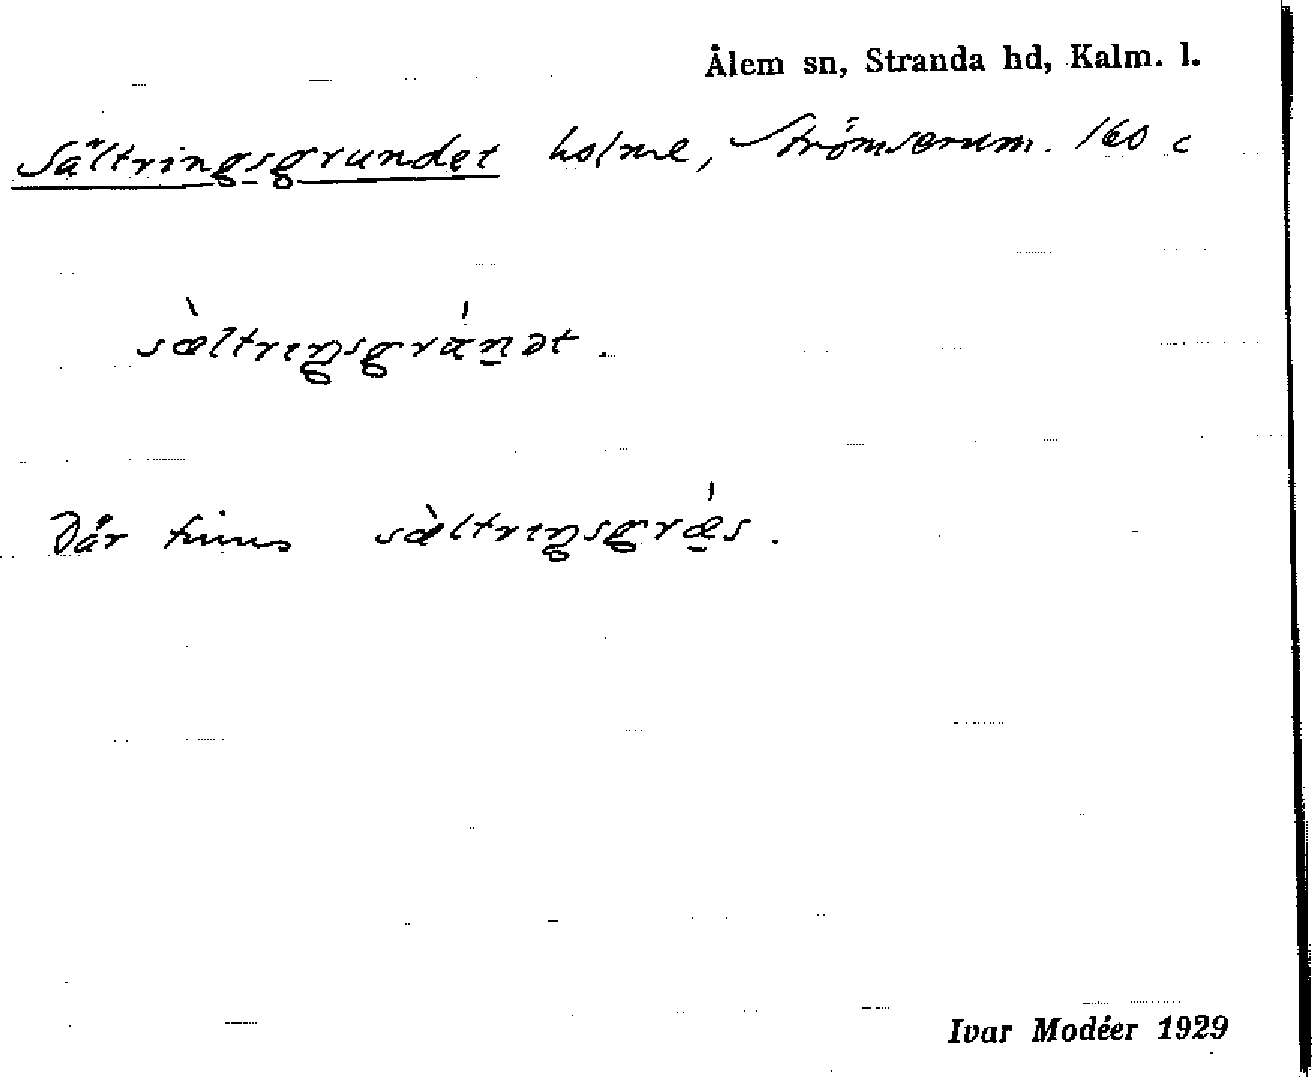 Ålem sn, Stranda hd, Kalm. l.
Sältringsgrundet holme, Strömserum. 160 c
sæ̀ltrıŋsgrán̠ət.
Där finns sæ̀ltrıŋsgrǽ̠s.
Ivar Modéer 1929